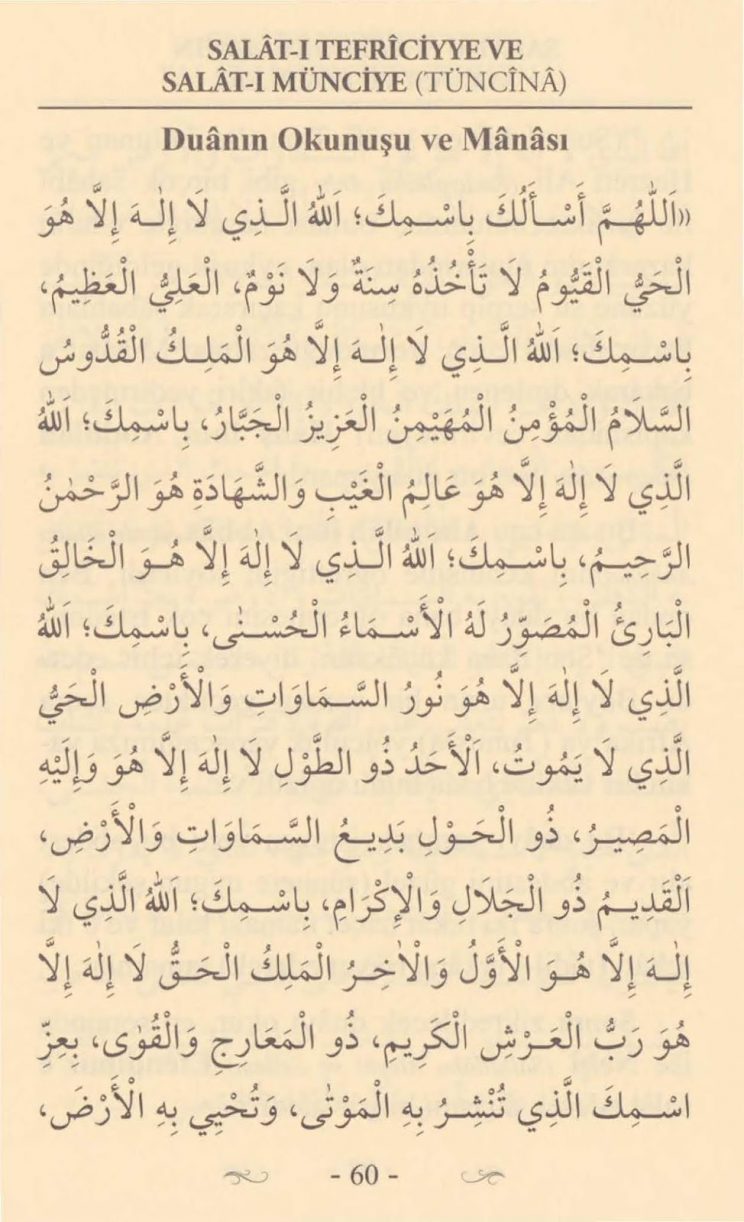 SALÂT-I TEFRÎCİYYE VE
SALÂT-I MÜNCİYE (TÜNCÎNÂ)
Duânın Okunuşu ve Mânâsı
«اَللّٰهُمَّ أَسْأَلُكَ بِاسْمِكَ؛ اَللهُ الَّذِي لَا إِلٰهَ إِلَّا هُوَ
الْحَيُّ الْقَيُّومُ لَا تَأْخُذُهُ سِنَةٌ وَلَا نَوْمٌ، الْعَلِيُّ الْعَظِيمُ،
بِاسْمِكَ؛ اَللهُ الَّذِي لَا إِلٰهَ إِلَّا هُوَ الْمَلِكُ الْقُدُّوسُ
السَّلَامُ الْمُؤْمِنُ الْمُهَيْمِنُ الْعَزِيزُ الْجَبَّارُ، بِاسْمِكَ؛ اَللهُ
الَّذِي لَا إِلٰهَ إِلَّا هُوَ عَالِمُ الْغَيْبِ وَالشَّهَادَةِ هُوَ الرَّحْمٰنُ
الرَّحِيمُ، بِاسْمِكَ؛ اَللهُ الَّذِي لَا إِلٰهَ إِلَّا هُوَ الْخَالِقُ
الْبَارِئُ الْمُصَوِّرُ لَهُ الْأَسْمَاءُ الْحُسْنٰى، بِاسْمِكَ؛ اَللهُ
الَّذِي لَا إِلٰهَ إِلَّا هُوَ نُورُ السَّمَاوَاتِ وَالْأَرْضِ الْحَيُّ
الَّذِي لَا يَمُوتُ، اَلْأَحَدُ ذُو الطَّوْلِ لَا إِلٰهَ إِلَّا هُوَ وَإِلَيْهِ
الْمَصِيرُ، ذُو الْحَوْلِ بَدِيعُ السَّمَاوَاتِ وَالْأَرْضِ،
اَلْقَدِيمُ ذُو الْجَلَالِ وَالْإِكْرَامِ، بِاسْمِكَ؛ اَللهُ الَّذِي لَا
إِلٰهَ إِلَّا هُوَ الْأَوَّلُ وَالْاٰخِرُ الْمَلِكُ الْحَقُّ لَا إِلٰهَ إِلَّا
هُوَ رَبُّ الْعَرْشِ الْكَرِيمِ، ذُو الْمَعَارِجِ وَالْقُوٰى، بِعِزِّ
اسْمِكَ الَّذِي تُنْشِرُ بِهِ الْمَوْتٰى، وَتُحْيِي بِهِ الْأَرْضَ،
- 60 -